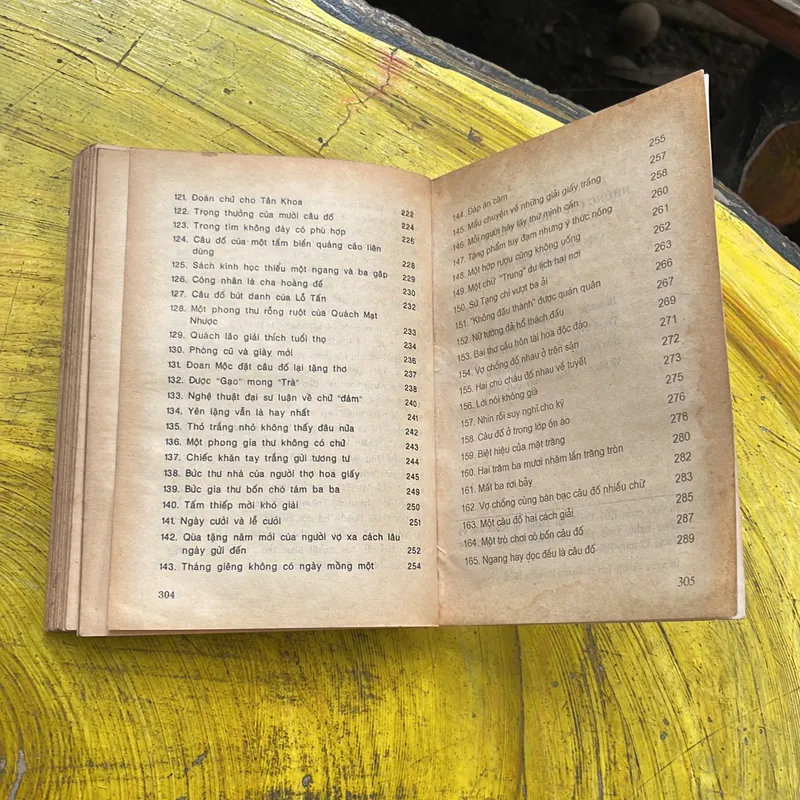 121. Đoán chủ cho Tân Khoa 222
122. Trọng thưởng của mười câu đố 224
123. Trong tim không đáy có phù hợp 226
124. Câu đố của một tấm biển quảng cáo liên
dùng 228
125. Sách kinh học thiếu một ngang và ba gập 229
126. Công nhân là cha hoàng đế 230
127. Câu đố bút danh của Lỗ Tấn 232
128. Một phong thư rỗng ruột của Quách Mạt
Nhược 233
129. Quách lão giải thích tuổi thọ 234
130. Phòng cũ và giày mới 236
131. Đoan Mộc đặt câu đố lại tặng thơ 237
132. Được "Gạo" mong "Trà" 238
133. Nghệ thuật đại sư luận về chữ "đảm" 240
134. Yên lặng vẫn là hay nhất 241
135. Thỏ trắng nhỏ không thấy đâu nữa 242
136. Một phong gia thư không có chữ 243
137. Chiếc khăn tay trắng gửi tương tư 244
138. Bức thư nhà của người thợ hoa giấy 245
139. Bức gia thư bốn chó tám ba ba 249
140. Tấm thiếp mời khó giải 250
141. Ngày cưới và lễ cưới 251
142. Qùa tặng năm mới của người vợ xa cách lâu
ngày gửi đến 252
143. Tháng giêng không có ngày mồng một 254
304
144. Đáp án câm 255
145. Mẩu chuyện về những giải giấy trắng 257
146. Mỗi người hãy lấy thứ mình cần 258
147. Tặng phẩm tuy đạm nhưng ý thức nồng 260
148. Một hớp rượu cũng không uống 261
149. Một chữ "Trung" du lịch hai nơi 263
150. Sứ Tạng chỉ vượt ba ải 266
151. "Không đấu thành" được quán quân 267
152. Nữ tướng đả hổ thách đấu 269
153. Bài thơ cầu hôn tài hoa độc đáo 271
154. Vợ chồng đố nhau ở trên sân 272
155. Hai chú cháu đố nhau về tuyết 273
156. Lời nói không già 275
157. Nhìn rồi suy nghĩ cho kỹ 276
158. Câu đố ở trong lớp ồn ào 278
159. Biệt hiệu của mặt trăng 280
160. Hai trăm ba mươi nhăm lần trăng tròn 281
161. Mất ba rơi bảy 282
162. Vợ chồng cùng bàn bạc câu đố nhiều chữ 283
163. Một câu đố hai cách giải 285
164. Một trò chơi có bốn câu đố 287
165. Ngang hay dọc đều là câu đố 289
305